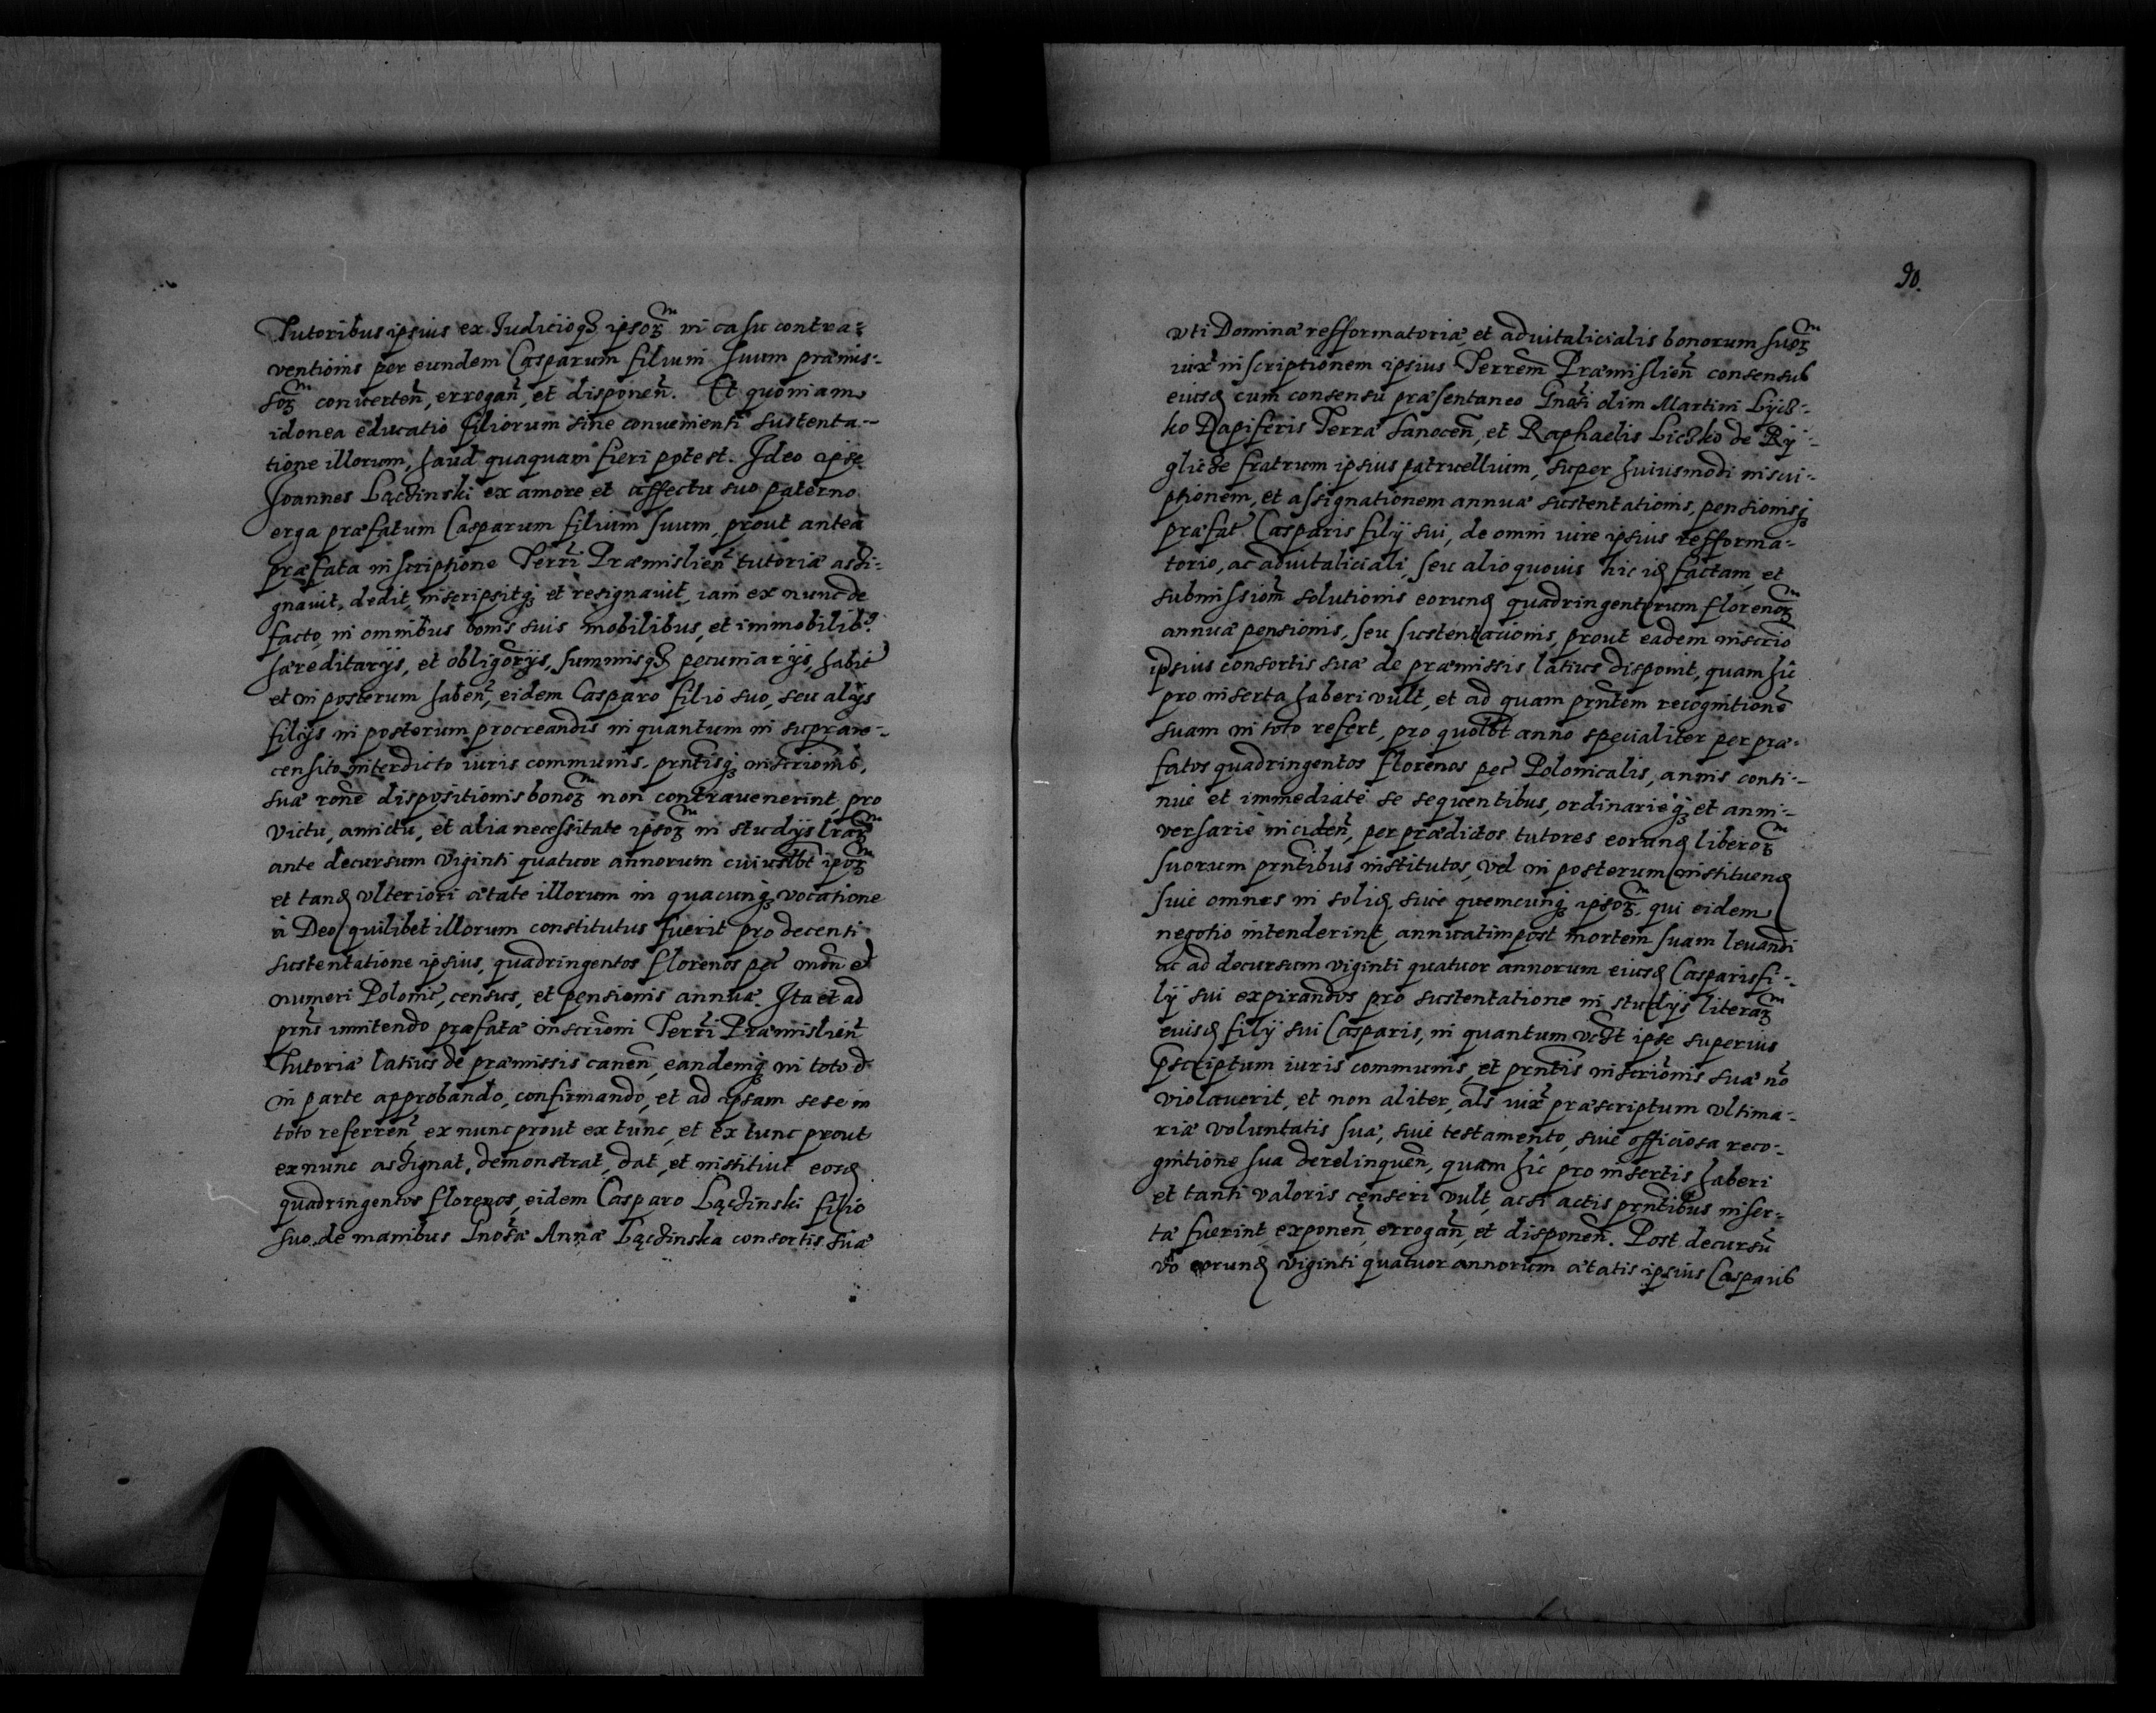 Tutoribus ipsius ex Iudicioq3 ipsorum in casu contra-
ventionis per eundem Casparum filium suum præmis-
sorum converten̄, errogan̄, et disponen̄. Et quoniam
idonea educatio filiorum sine convenienti sustenta-
tione illorum, haud quaquam fieri potest. Ideo ipse
Joannes Łączinski ex amore et affectu suo paterno
erga præfatum Casparum filium suum, prout antea
præfata inscriptione Terri Præmislien̄ tutoriæ assi-
gnavit, dedit, inscripsitq3 et resignavit, iam ex nunc de
facto, in omnibus bonis suis mobilibus, et immobilib9
hæreditarijs, et obligorijs, summisq3 pecuniarijs, habit
et in posterum haben̄, eidem Casparo filio suo, seu alijs
filijs in posterum procreandis in quantum in suprare-
censito interdicto iuris communis, prntisq3 inscrionis,
suæ rone dispositionis bonorum non contravenerint, pro
victu, amictu, et alia necessitate ipsorum in studijs lrarum
ante decursum viginti quatuor annorum cuiuslbt ipsorum
et tand ulteriori ætate illorum in quacunq3 vocatione
à Deo quilibet illorum constitutus fuerit pro decenti
sustentatione ipsius, quadringentos florenos pec mon et
numeri Polonic, census, et pensionis annuæ. Ita et ad
prns innitendo præfatæ inscrioni Terri Præmislien̄
Tutoriæ latius de præmissis canen̄, eandemq3 in toto et
in parte approbando, confirmando, et ad ipsam sese in
toto referren̄, ex nunc prout ex tunc, et ex tunc prout
ex nunc assignat, demonstrat, dat, et instituit eosd
quadringentos florenos, eidem Casparo Łączinski filio
suo de manibus Gnosæ Annæ Łączinska consortis suæ
90.
vti Dominæ refformatoriæ, et advitalicialis bonorum suorum
iux inscriptionem ipsius Terrem Præmislien̄ consensus
eiusd cum consensu præsentaneo Gnosi olim Martini Lycz-
ko Dapiferis Terræ Sanocen̄, et Raphaelis Liczko de Ry-
glicze fratrum ipsius patruellium, super huiusmodi inscri-
ptionem, et assignationem annuæ sustentationis, pensionisq3
præfat Casparis filij sui, de omni iure ipsius refforma-
torio, ac advitaliciali, seu alio quovis hic id factam, et
submissiom solutionis eorund quadringentorum florenorum
annuæ pensionis, seu sustentationis, prout eadem inscrio
ipsius consortis suæ de præmissis latius disponit, quam hic
pro inserta haberi vult, et ad quam prntem recognitione
suam in toto refert, pro quolbt anno specialiter per præ-
fatos quadringentos florenos pec Polonicalis, annis conti-
nue et immediate se sequentibus, ordinarieq3 et anni-
versarie inciden̄, per prædictos tutores eorund liberorum
suorum prntibus institutos, vel in posterum instituend
sive omnes in solid, sive quemcunq3 ipsorum, qui eidem
negotio intenderint, annuatim post mortem suam levandi
ac ad decursum viginti quatuor annorum eiusd Casparis fi-
lij sui expirandos pro sustentatione in studijs literarum
eiusd filij sui Casparis, in quantum ipse superius
pscriptum iuris communis, et prntis inscrionis suæ no
violaverit, et non aliter, als iux præscriptum vltima-
riæ voluntatis suæ, sive testamento, sive officiosa reco-
gnitione sua derelinquen̄, quam hic pro insertis haberi
et tanti valoris censeri vult, acsi actis prntibus inser-
tæ fuerint, exponen̄, errogan̄, et disponen̄. Post decursu
vo eorund viginti quatuor annorum ætatis ipsius Casparis